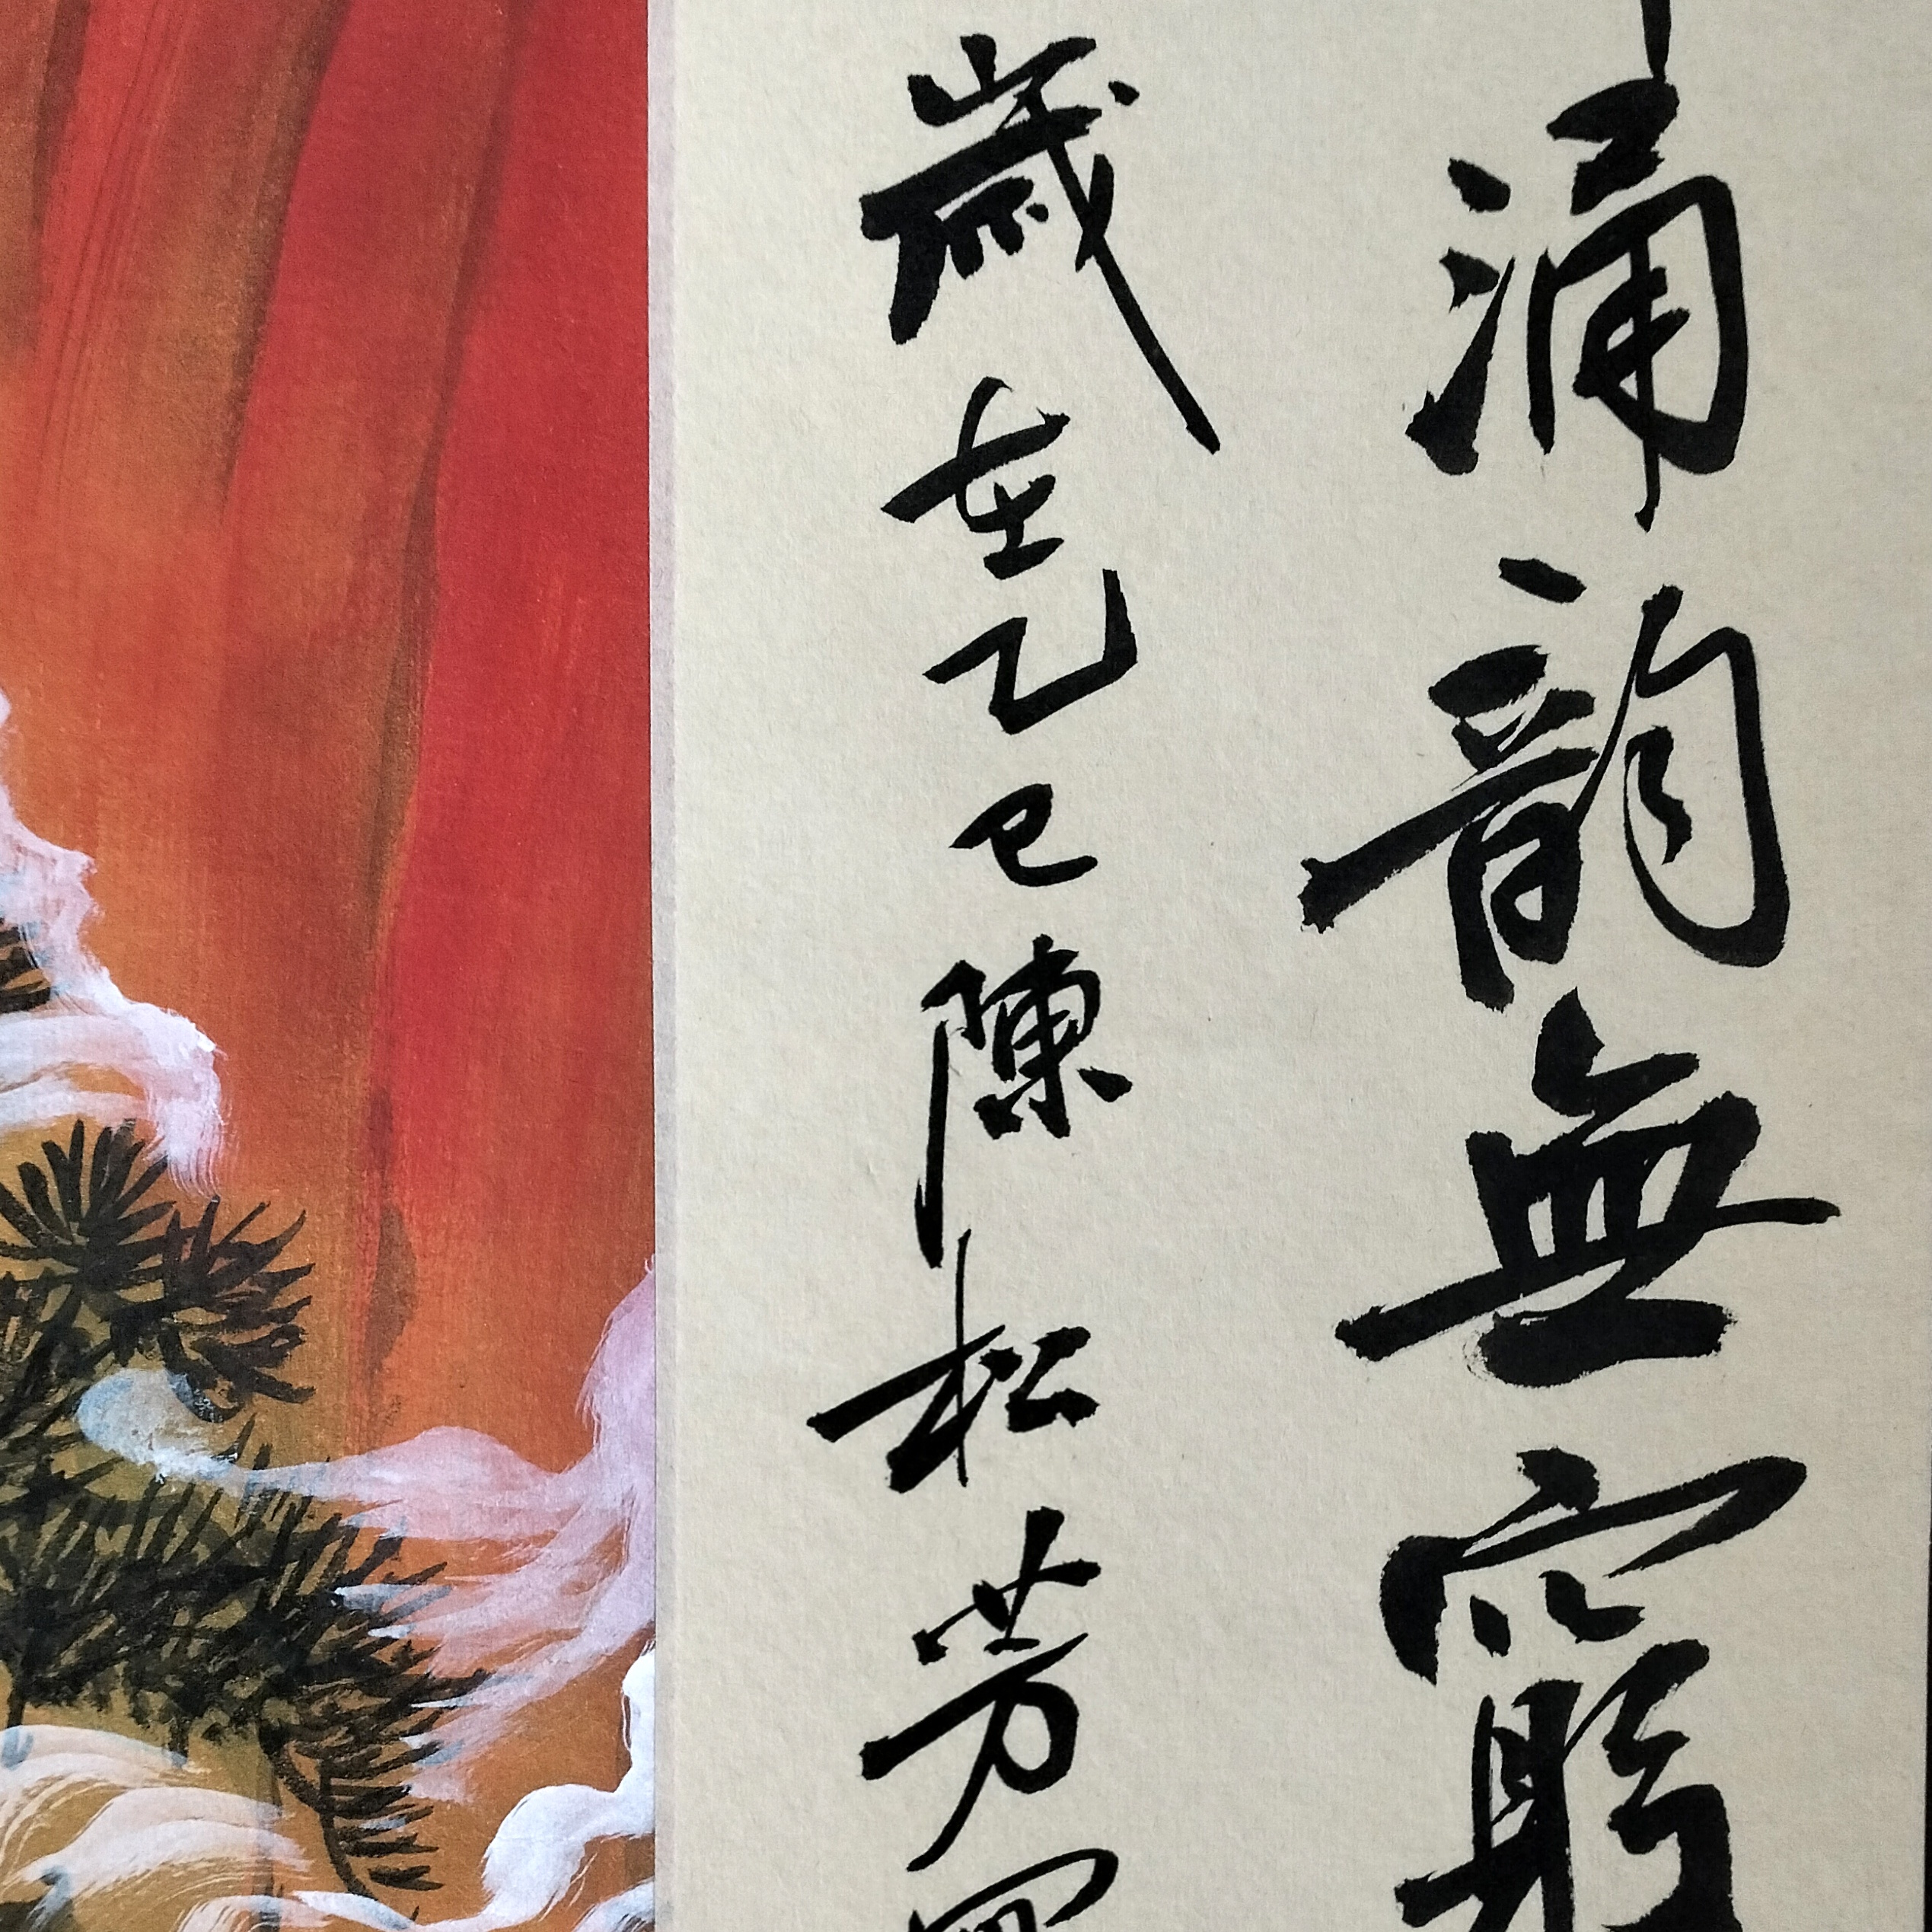 涌韵無窮
歲在乙巳陳松芳